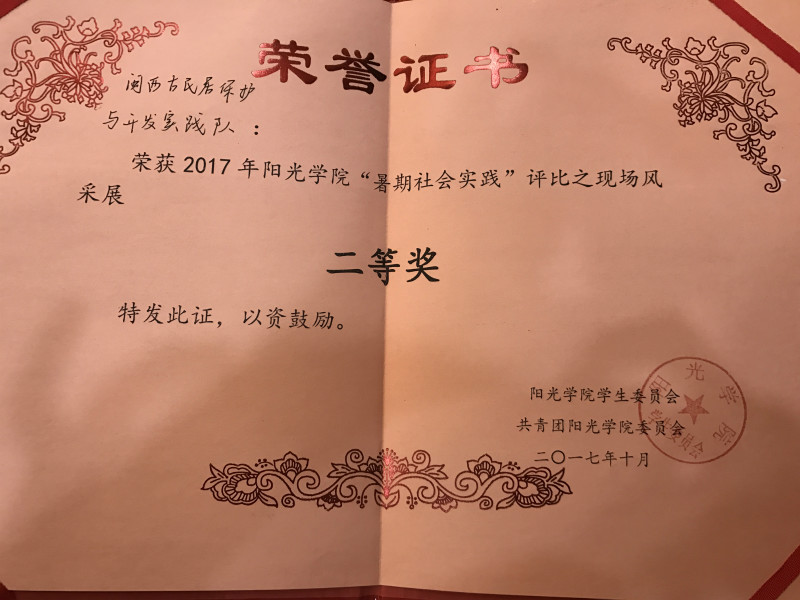 荣誉证书
闽西古民居保护
与开发实践队：
荣获 2017 年阳光学院“暑期社会实践”评比之现场风
采展
二等奖
特发此证，以资鼓励。
阳光学院学生委员会
共青团阳光学院委员会
二〇一七年十月
阳光学院
学生委员会